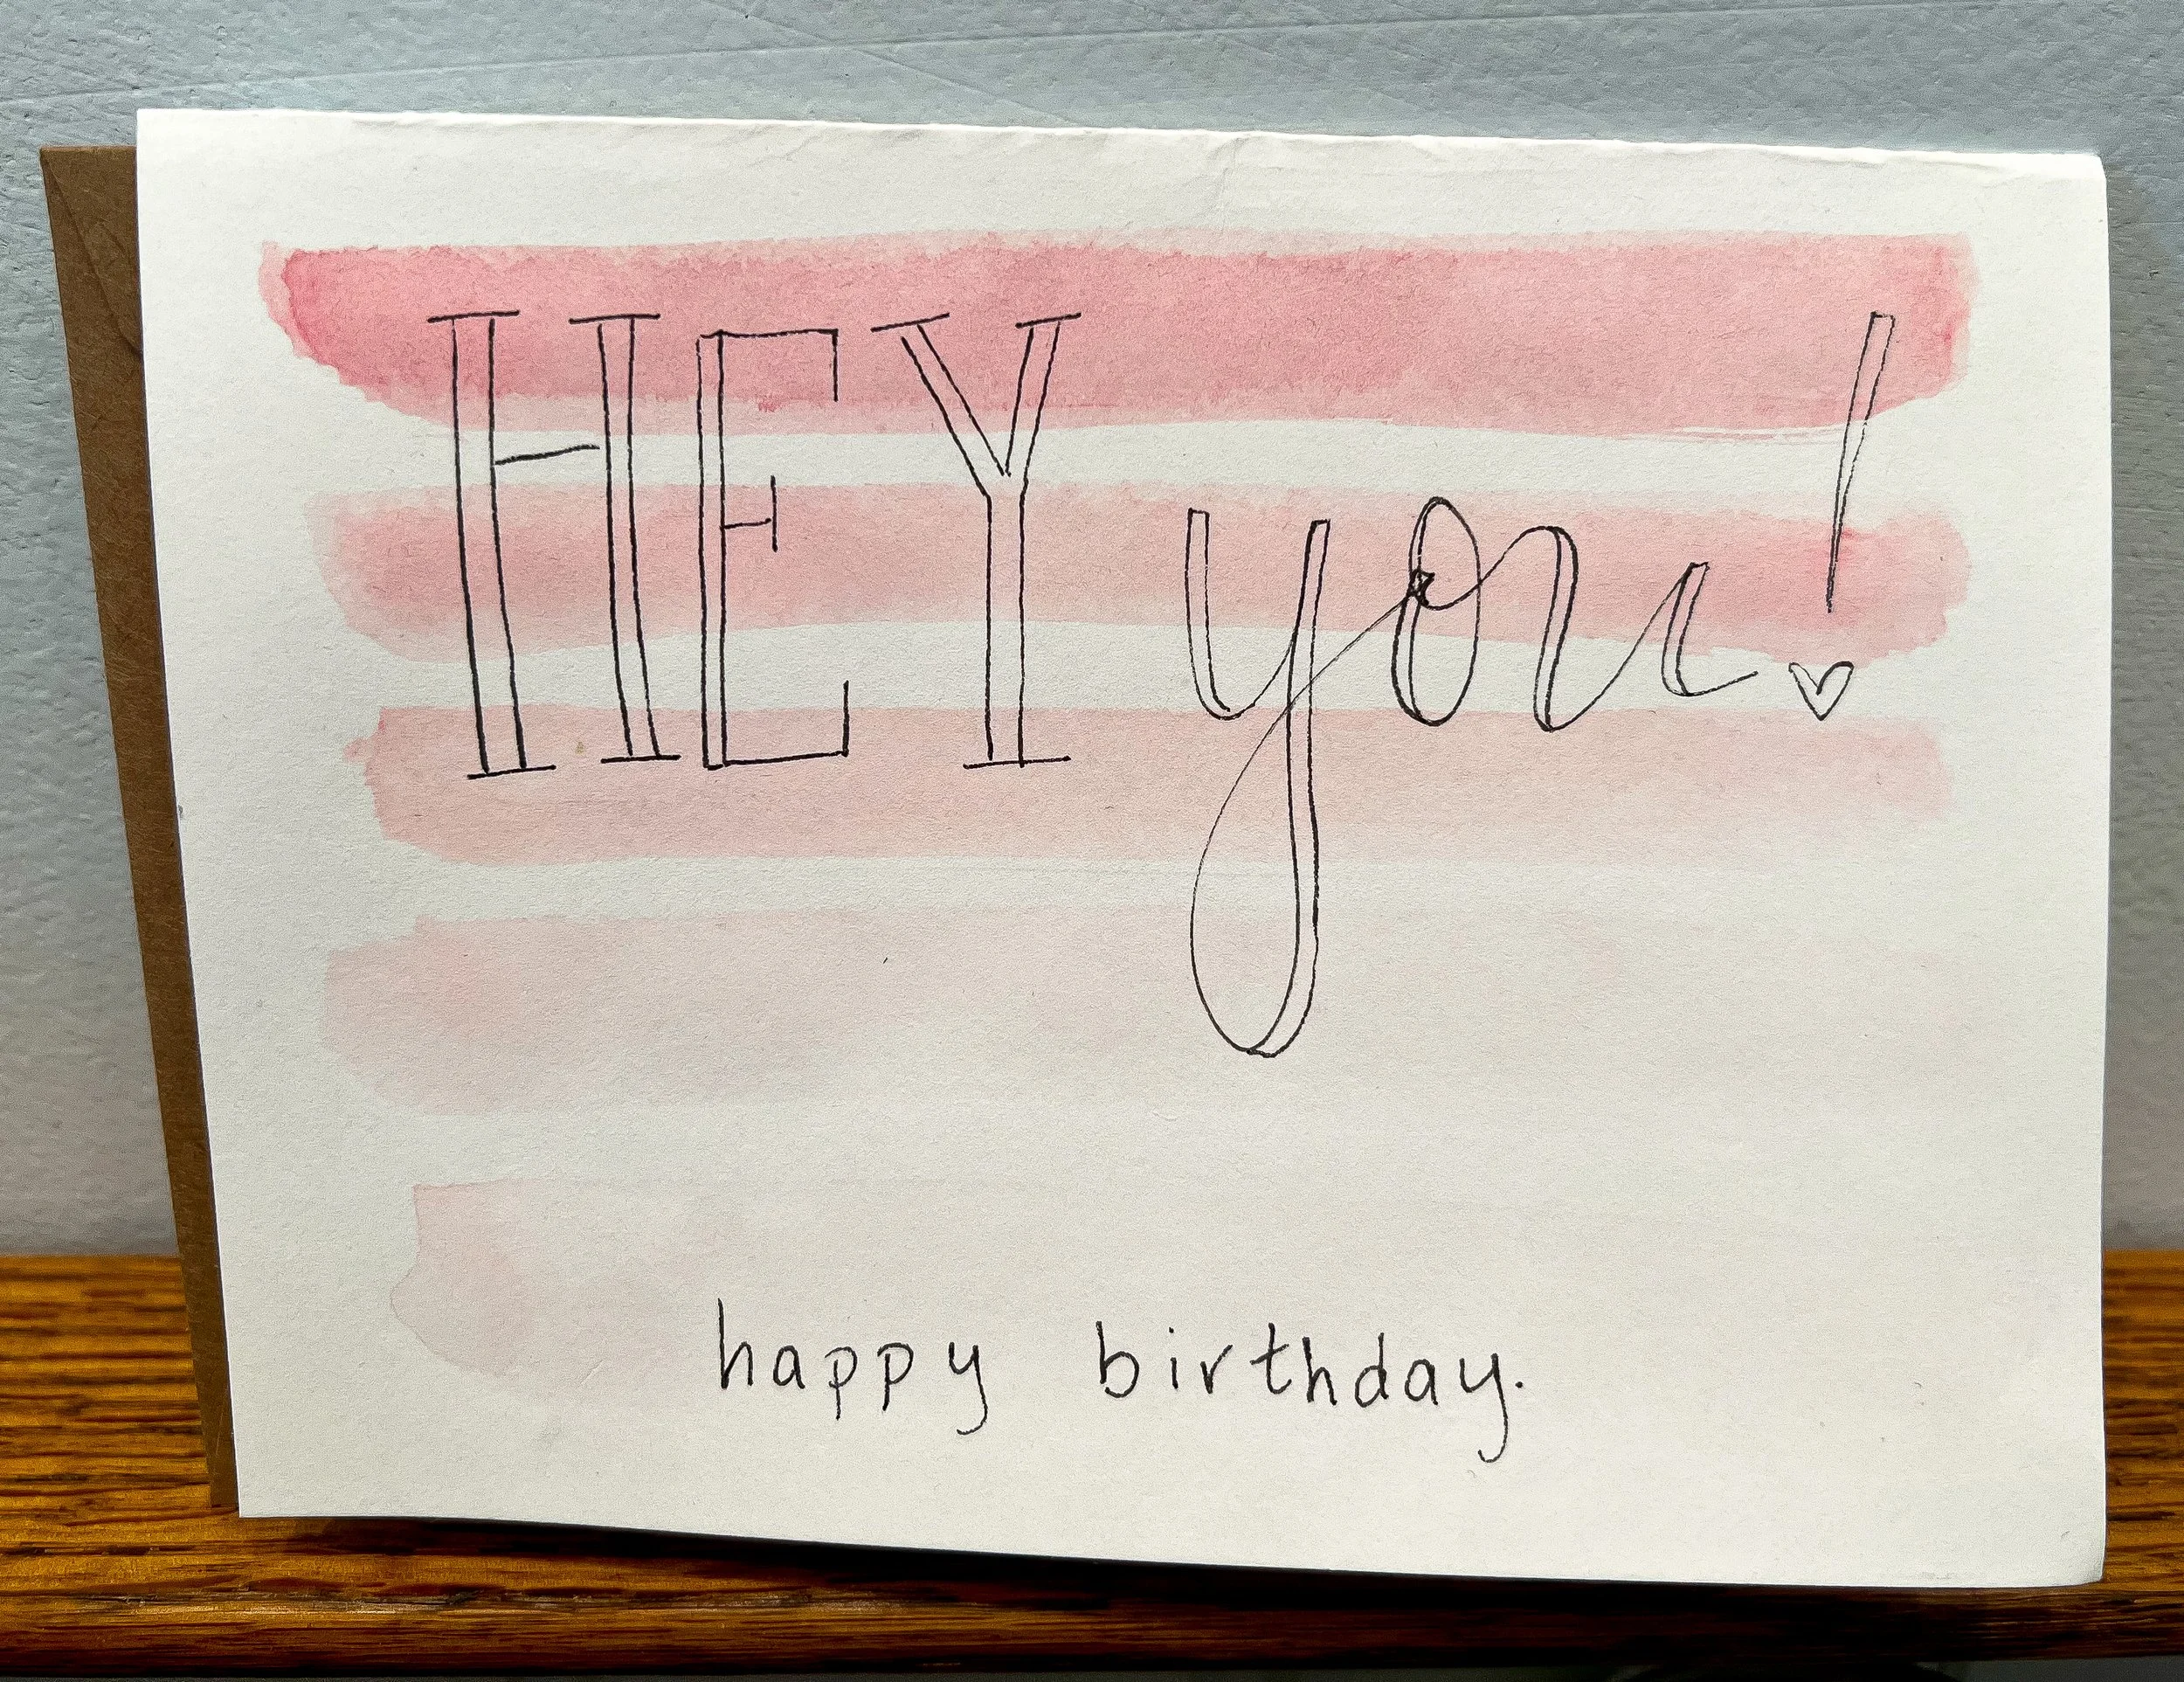 HEY you!
happy birthday.